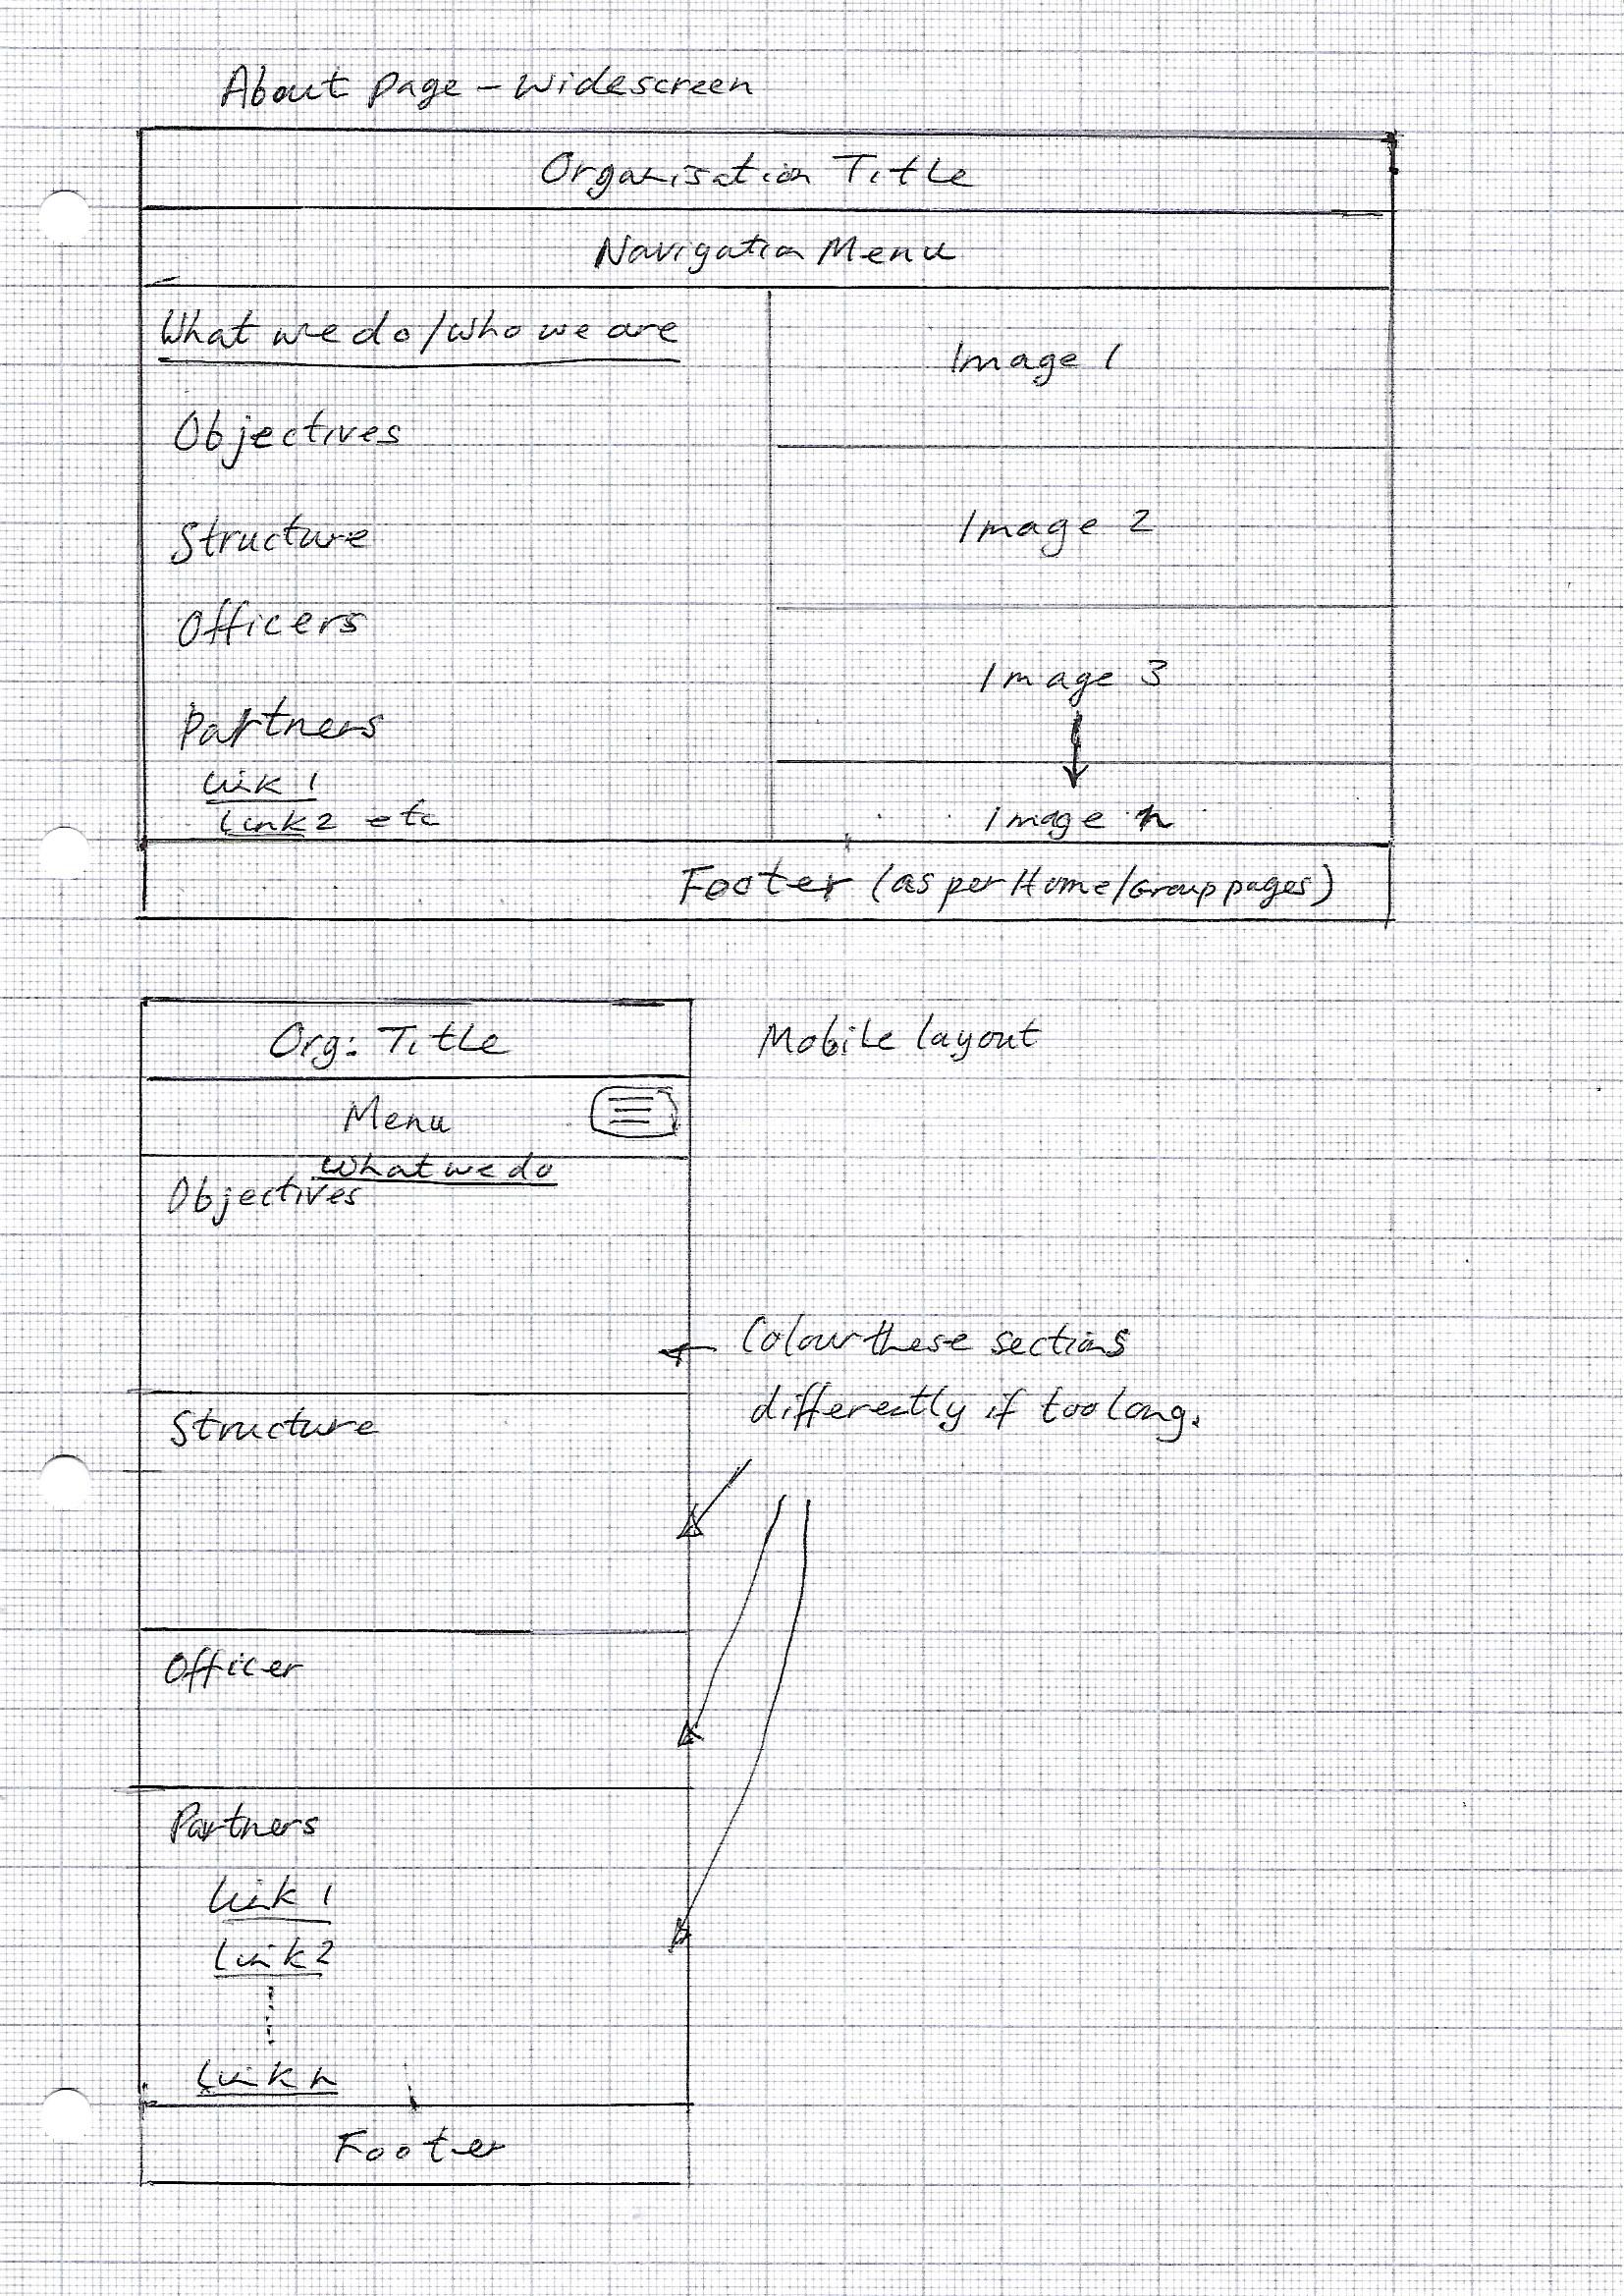 About page - Widescreen
Organisation Title
Navigation Menu
What we do/Who we are
Objectives
Structure
Officers
Partners
Link 1
Link 2 etc
Image 1
Image 2
Image 3
Image n
Footer (as per Home/Group pages)
Org: Title
Menu
What we do
Objectives
Structure
Officer
Partners
Link 1
Link 2
Link n
Footer
Mobile layout
Colour these sections
differently if too long.